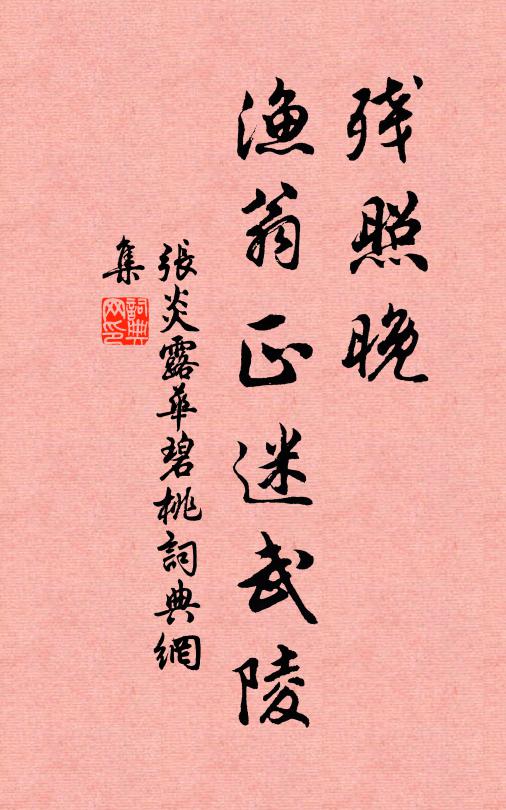 残照晚
漁翁正迷武陵
張炎露華碧桃詞典網
集
詞典
网印